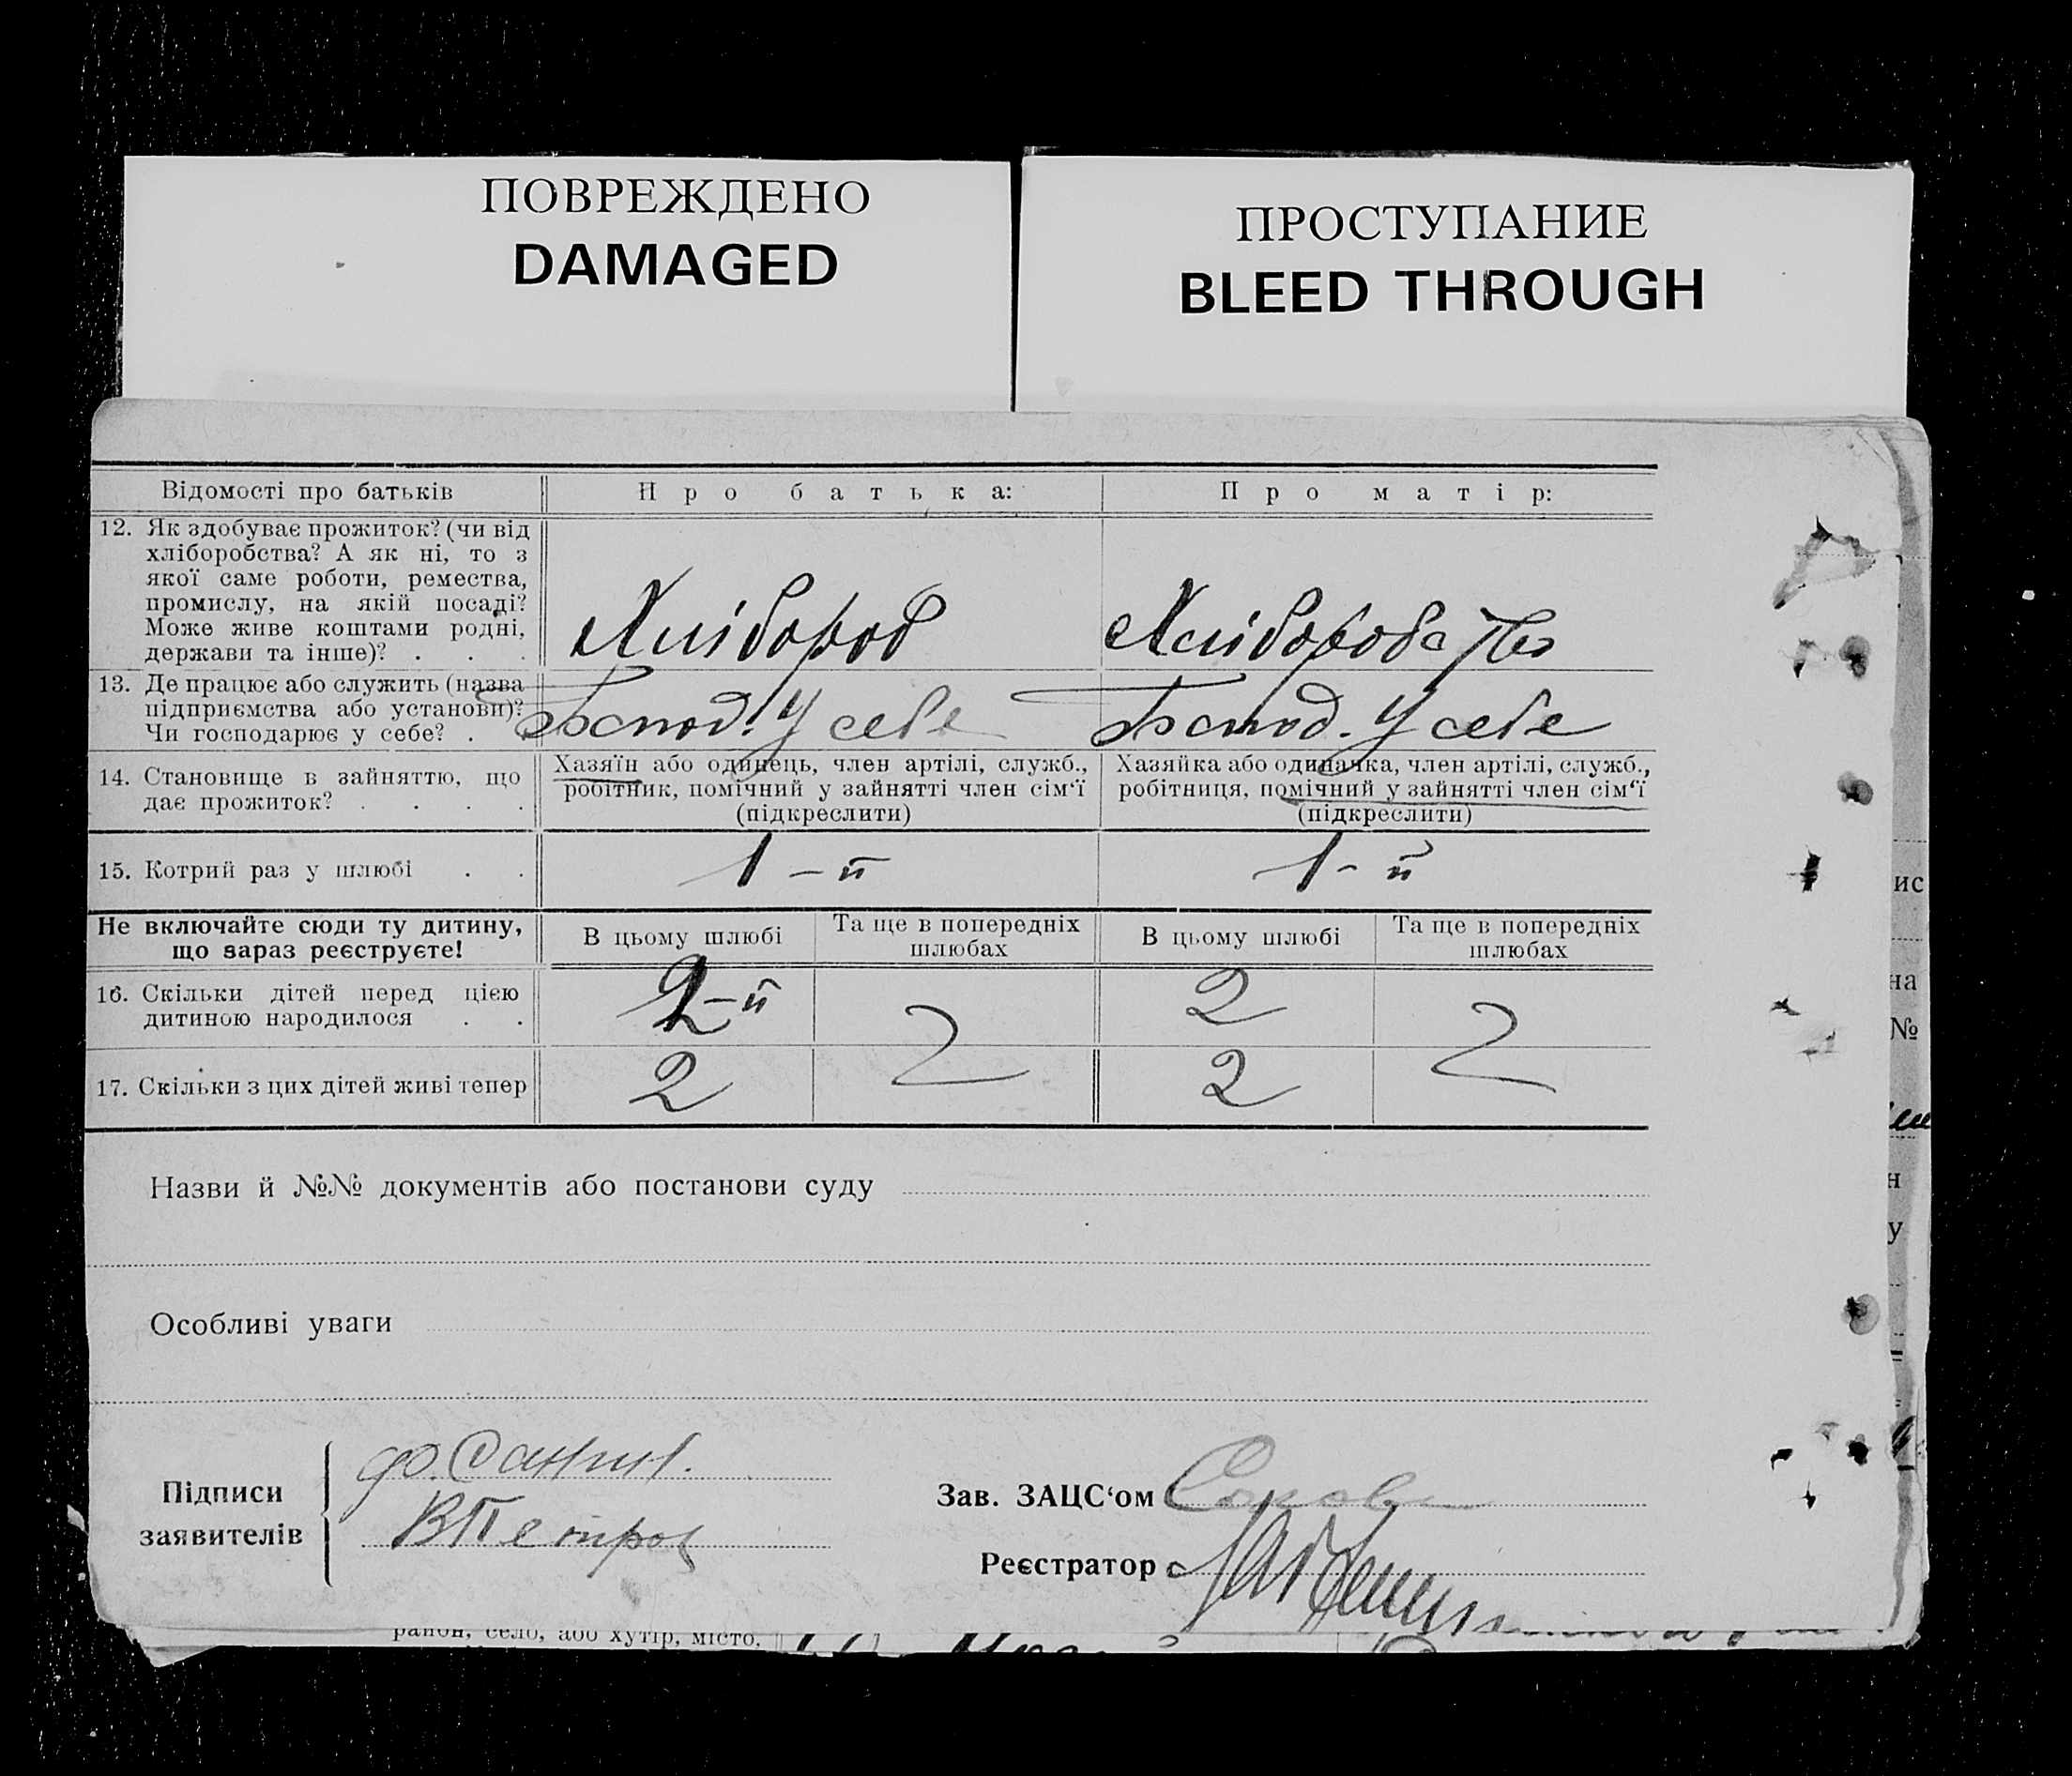 ПОВРЕЖДЕНО
DAMAGED
ПРОСТУПАНИЕ
BLEED THROUGH
Відомості про батьків
Про батька:
Про матір:
12. Як здобуває прожиток? (чи від
хліборобства? А як ні, то з
якої саме роботи, ремества,
промислу, на якій посаді?
Може живе коштами родні,
держави та інше)? . . .
Хлібороб
Хліборобство
13. Де працює або служить (назва
підприємства або установи)?
Чи господарює у себе? .
Господ. У себе
Господ. У себе
14. Становище в зайняттю, що
дає прожиток? . . . .
Хазяїн або одинець, член артілі, служб.,
робітник, помічний у зайнятті член сім‘ї
(підкреслити)
Хазяйка або одиначка, член артілі, служб.,
робітниця, помічний у зайнятті член сім‘ї
(підкреслити)
15. Котрий раз у шлюбі . .
1-й
1-й
Не включайте сюди ту дитину,
що зараз реєструєте!
В цьому шлюбі
Та ще в попередніх
шлюбах
В цьому шлюбі
Та ще в попередніх
шлюбах
16. Скільки дітей перед цією
дитиною народилося . .
2-й
2
17. Скільки з цих дітей живі тепер
2
2
Назви й №№ документів або постанови суду
Особливі уваги
Підписи
заявителів
ВПетров
Зав. ЗАЦС‘ом
Реєстратор
район, село, або хутір, місто,
ис
на
№
н
у